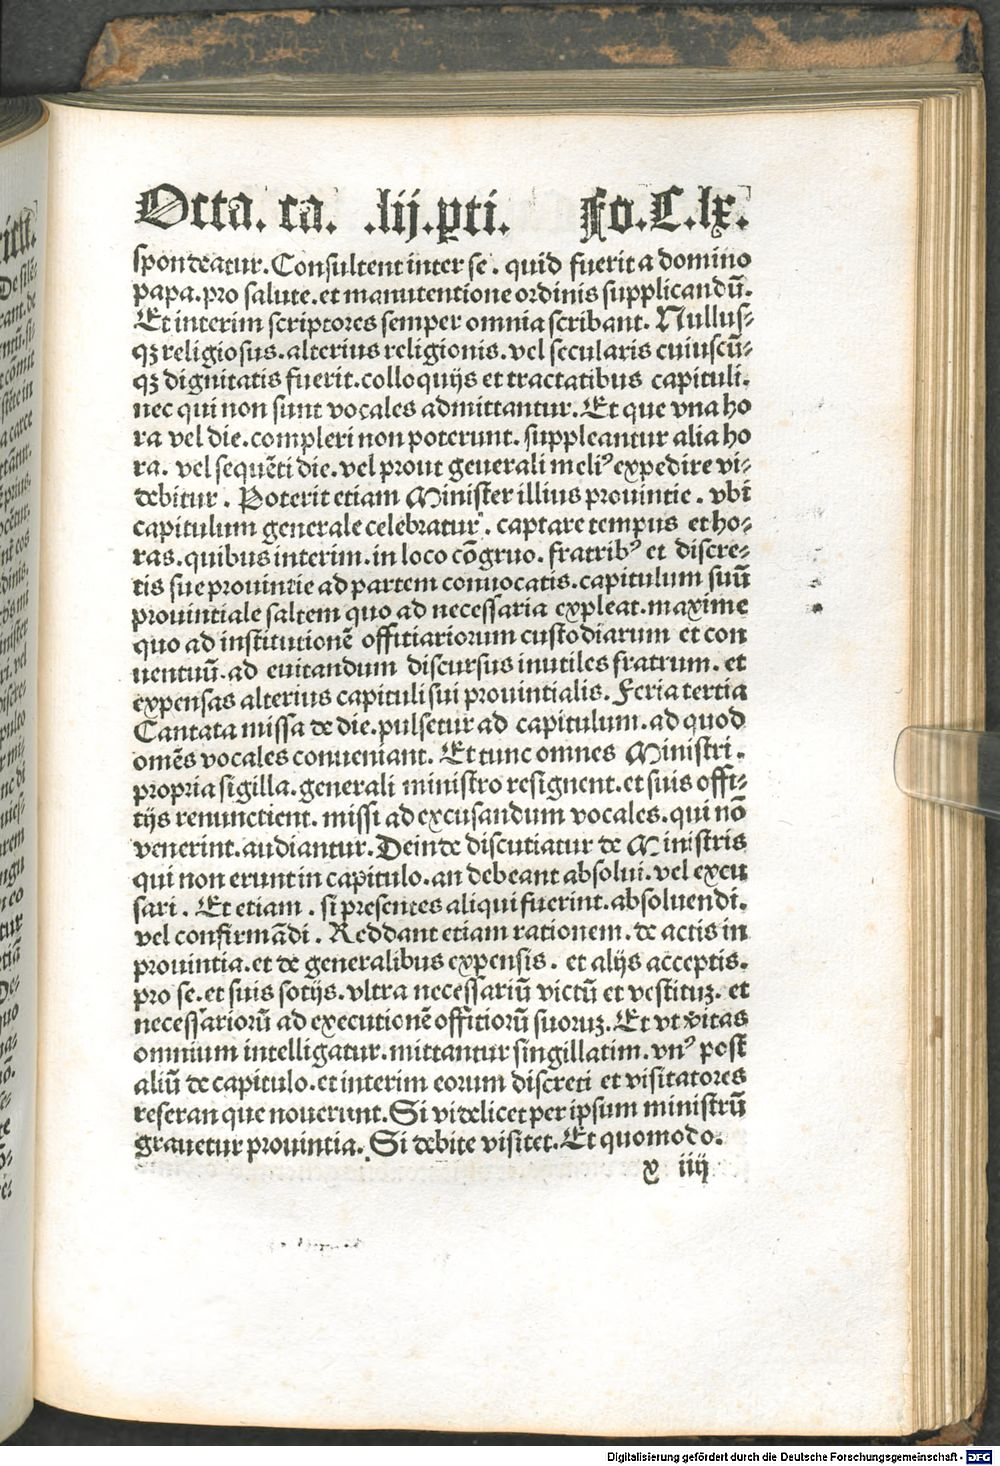 Octa. ca. .lij.pti. Fo.C.lx.
spondeatur. Consultent inter se. quid fuerit a domino
papa. pro salute. et manutentione ordinis supplicandū.
Et interim scriptores semper omnia scribant. Nullus⸗
qꝫ religiosus. alterius religionis. vel secularis cuiuscū⸗
qꝫ dignitatis fuerit. colloquijs et tractatibus capituli.
nec qui non sunt vocales admittantur. Et que vna ho
ra vel die. compleri non poterunt. suppleantur alia ho
ra. vel sequēti die. vel prout generali meliꝰ expedire vi⸗
debitur. Poterit etiam Minister illius prouintie. vbi
capitulum generale celebratur. captare tempus et ho⸗
ras. quibus interim. in loco cōgruo. fratribꝰ et discre⸗
tis sue prouintie ad partem conuocatis. capitulum suū
prouintiale saltem quo ad necessaria expleat. maxime
quo ad institutionē offitiariorum custodiarum et con
uentuū. ad euitandum discursus inutiles fratrum. et
expensas alterius capituli sui prouintialis. Feria tertia
Cantata missa de die. pulsetur ad capitulum. ad quod
omēs vocales conueniant. Et tunc omnes Ministri.
propria sigilla. generali ministro resignent. et suis offi⸗
tijs renunctient. missi ad excusandum vocales. qui nō
venerint. audiantur. Deinde discutiatur de Ministris
qui non erunt in capitulo. an debeant absolui. vel excu
sari. Et etiam. si presentes aliqui fuerint. absoluendi.
vel confirmādi. Reddant etiam rationem. de actis in
prouintia. et de generalibus expensis. et alijs acceptis.
pro se. et suis sotijs. vltra necessariū victū et vestituꝫ. et
necessariorū ad executionē offitiorū suoruꝫ. Et vt v̄itas
omnium intelligatur. mittantur singillatim. vnꝰ post
aliū de capitulo. et interim eorum discreti et visitatores
referan que nouerunt. Si videlicet per ipsum ministrū
grauetur prouintia. Si debite visitet. Et quomodo.
x iiij
Digitalisierung gefördert durch die Deutsche Forschungsgemeinschaft - DFG